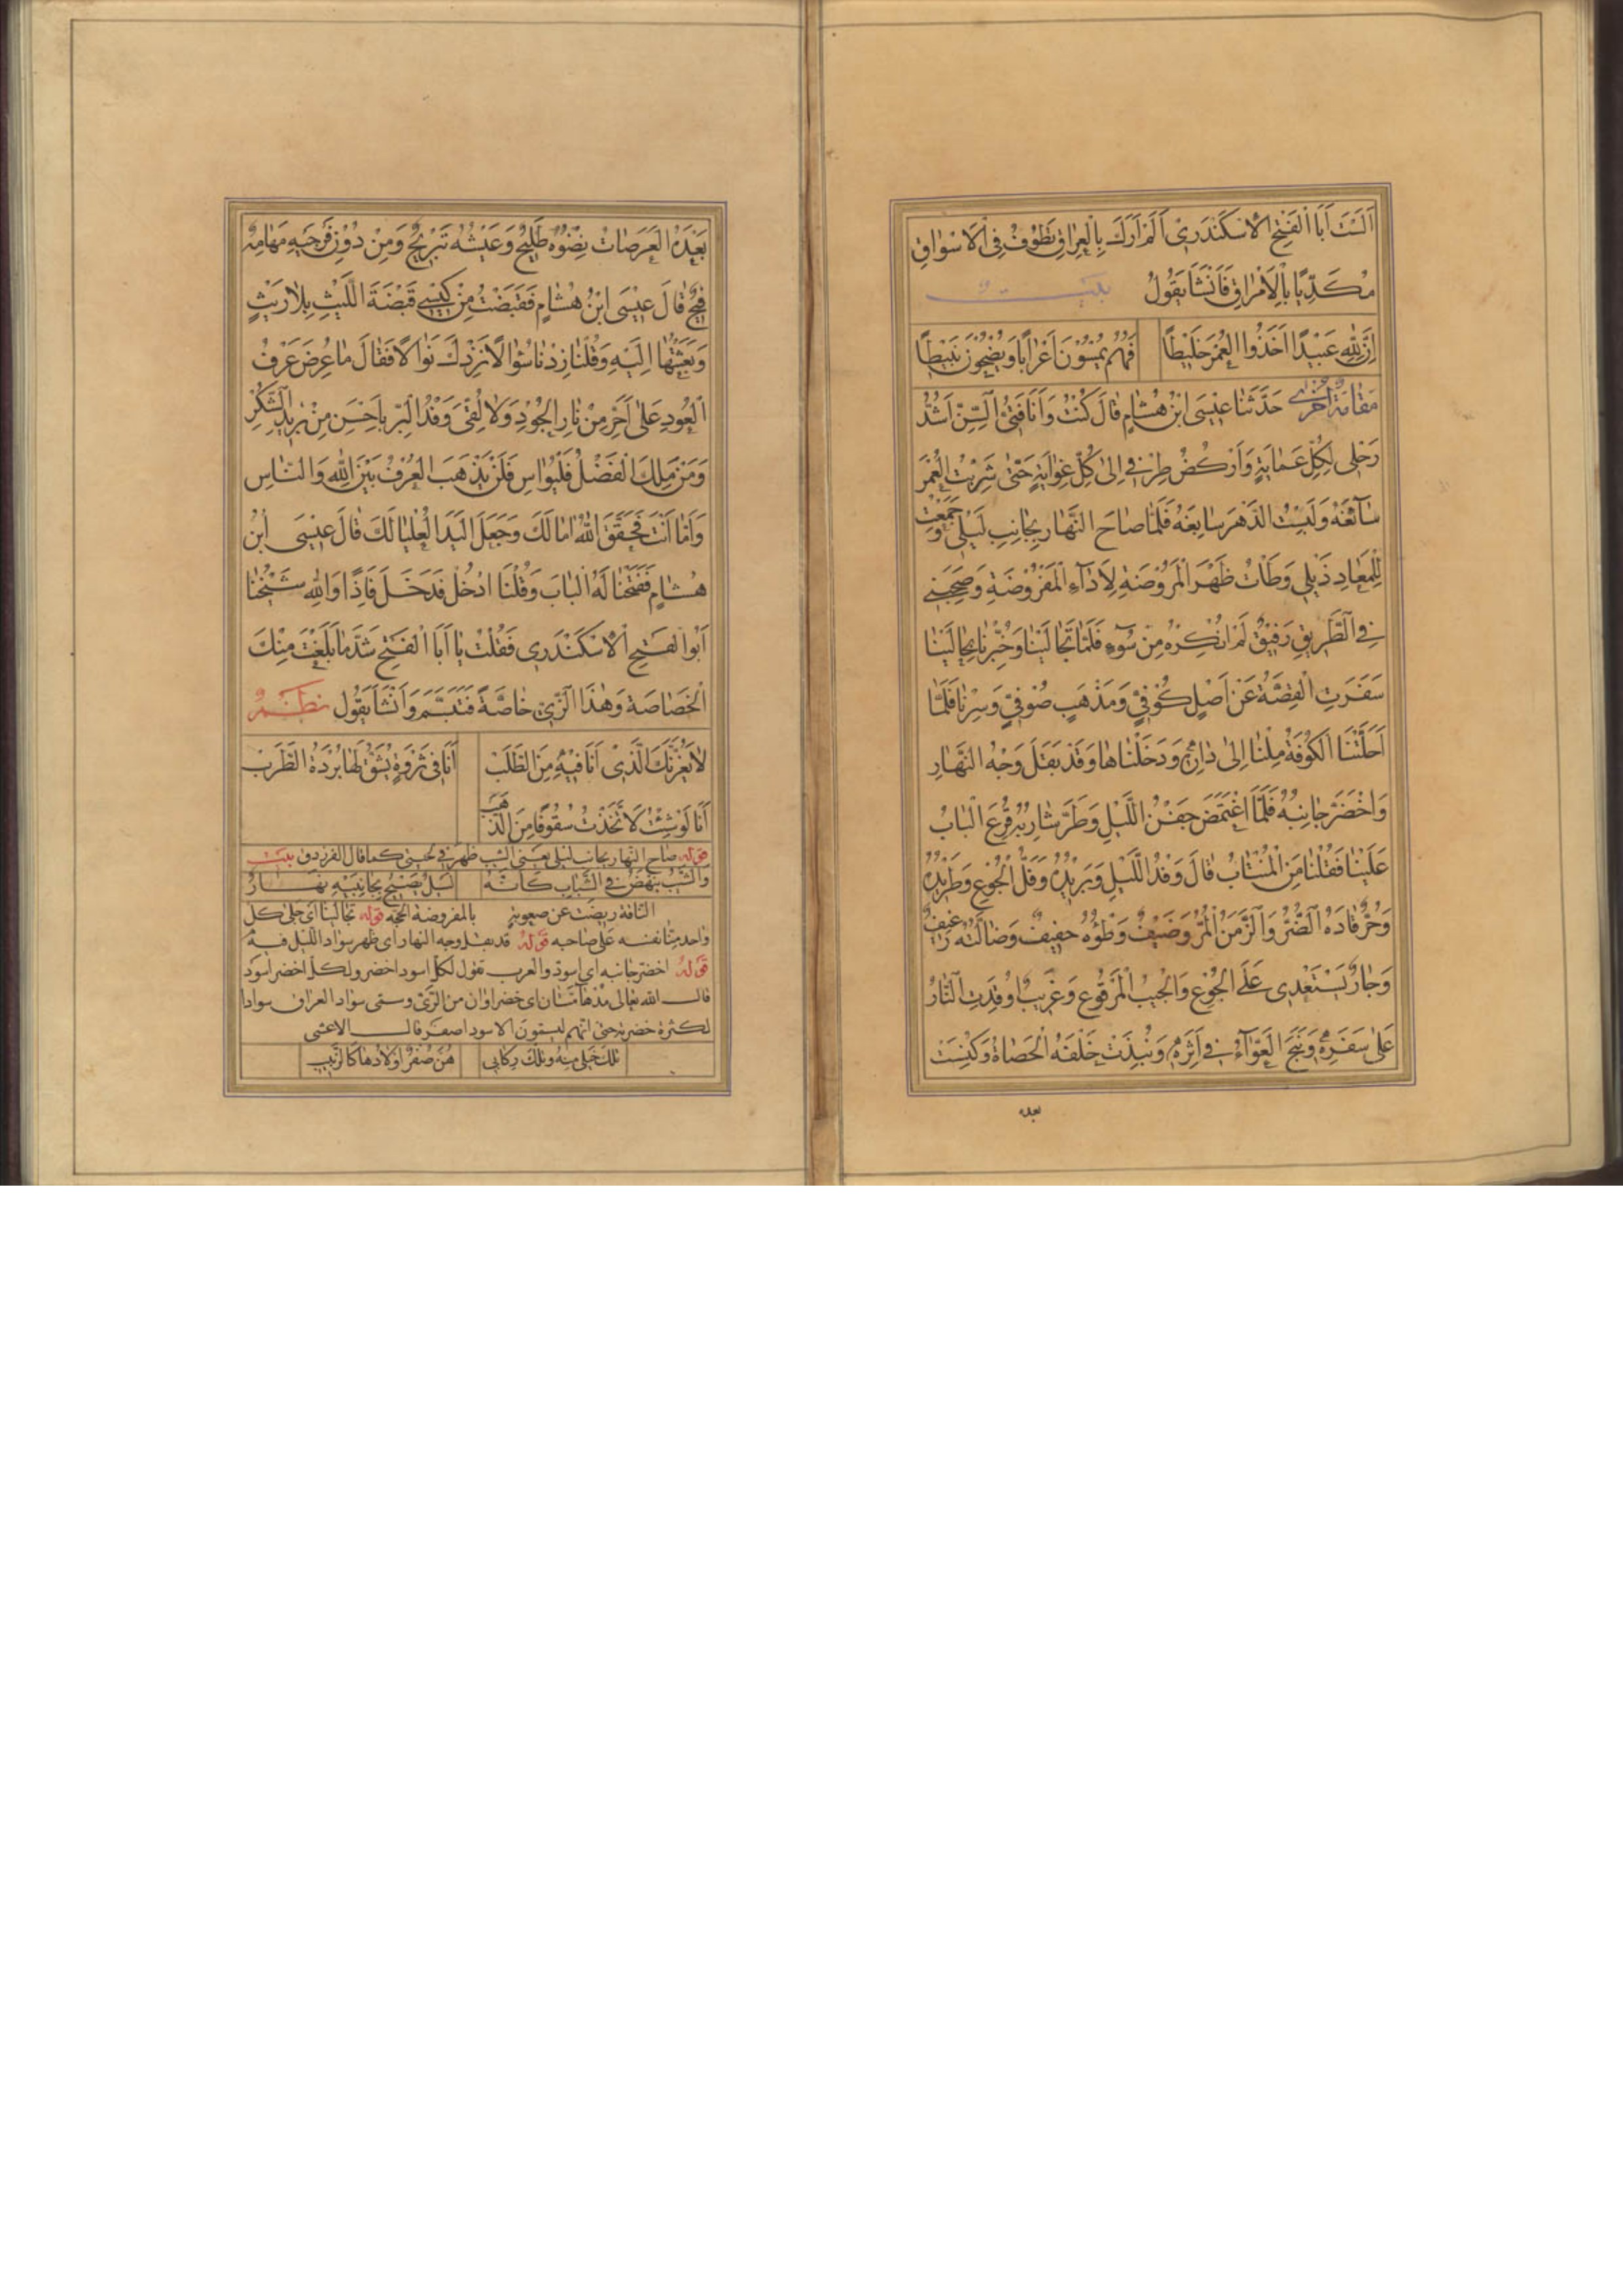 اَلَسْتَ اَبَا الْفَتْحِ الْاِسْكَنْدَرِیْ اَلَمْ اَرَكَ بِالْعِرَاقِ تَطُوْفُ فِی الْاَسْوَاقِ
مُكَدِّیًا بِالْاَوْرَاقِ فَاَنْشَاَ یَقُوْلُ بیت
اِنَّ لِلّٰهِ عَبِیْدًا اَخَذُوا الْعُمْرَ خَلِیْطًا فَهُمْ یُمْسُوْنَ اَعْرَابًا وَیُضْحُوْنَ نَبِیْطًا
مَقَامَةٌ اُخْرٰی حَدَّثَنَا عِیْسَی ابْنُ هِشَامٍ قَالَ كُنْتُ وَاَنَا فَتِیُّ السِّنِّ اَشُدُّ
رَحْلِی لِكُلِّ عَمَایَةٍ وَاَرْكُضُ طِرْفِی اِلٰی كُلِّ غِوَایَةٍ حَتّٰی شَرِبْتُ الْعُمْرَ
سَآئِغَهُ وَلَبِسْتُ الدَّهْرَ سَابِغَهُ فَلَمَّا صَاحَ النَّهَارُ بِجَانِبِ لَیْلِی وَجَمَعْتُ
لِلْمَعَادِ ذَیْلِی وَطَاْتُ ظَهْرَ الْمَرُوْضَةِ لِاَدَآءِ الْمَفْرُوْضَةِ وَصَحِبَنِی
فِی الطَّرِیْقِ رَفِیْقٌ لَمْ اُنْكِرْهُ مِنْ سُوْٓءٍ فَلَمَّا تَجَالَیْنَا وَخُبِّرْنَا بِحَالَیْنَا
سَفَرَتِ الْقِصَّةُ عَنْ اَصْلٍ كُوْفِیٍّ وَمَذْهَبٍ صُوْفِیٍّ وَسِرْنَا فَلَمَّا
اَحَلَّتْنَا الْكُوْفَةُ مِلْنَا اِلٰی دَارِهٖ وَدَخَلْنَاهَا وَقَدْ بَقَلَ وَجْهُ النَّهَارِ
وَاخْضَرَّ جَانِبُهُ فَلَمَّا اغْتَمَضَ جَفْنُ اللَّیْلِ وَطَرَّ شَارِبُهُ قُرِعَ الْبَابُ
عَلَیْنَا فَقُلْنَا مَنِ الْمُنْتَابُ قَالَ وَفْدُ اللَّیْلِ وَبَرِیْدُهُ وَفَلُّ الْجُوْعِ وَطَرِیْدُهُ
وَحُرٌّ قَادَهُ الضُّرُّ وَالزَّمَنُ الْمُرُّ وَضَیْفٌ وَطْؤُهُ خَفِیْفٌ وَضَالَّتُهُ رَغِیْفٌ
وَجَارٌ یَسْتَعْدِی عَلَی الْجُوْعِ وَالْجَیْبِ الْمَرْقُوْعِ وَغَرِیْبٌ اُوْقِدَتِ النَّارُ
عَلٰی سَفَرِهٖ وَنَبَحَ الْعَوَّآءُ فِی اَثَرِهٖ وَنُبِذَتْ خَلْفَهُ الْحَصَاةُ وَكُنِسَتْ
بعده
بَعْدَهُ الْعَرَصَاتُ نِضْوُهُ طَلِیْحٌ وَعَیْشُهُ تَبْرِیْحٌ وَمِنْ دُوْنِ فَرْخَیْهِ مَهَامِهُ
فِیْحٌ قَالَ عِیْسَی ابْنُ هِشَامٍ فَقَبَضْتُ مِنْ كِیْسِی قَبْضَةَ اللَّیْثِ بِلَا رَیْثٍ
وَبَعَثْتُهَا اِلَیْهِ وَقُلْنَا زِدْنَا سُؤَالًا نَزِدْكَ نَوَالًا فَقَالَ مَا عُرِضَ عَرْفُ
الْعُوْدِ عَلٰی اَحَرَّ مِنْ نَارِ الْجُوْدِ وَلَا لُقِیَ وَفْدُ الْبِرِّ بِاَحْسَنَ مِنْ بَرِیْدِ الشُّكْرِ
وَمَنْ مَلَكَ الْفَضْلَ فَلْیُوَاسِ فَلَنْ یَذْهَبَ الْعُرْفُ بَیْنَ اللّٰهِ وَالنَّاسِ
وَاَمَّا اَنْتَ فَحَقَّقَ اللّٰهُ اٰمَالَكَ وَجَعَلَ الْیَدَ الْعُلْیَا لَكَ قَالَ عِیْسَی ابْنُ
هِشَامٍ فَفَتَحْنَا لَهُ الْبَابَ وَقُلْنَا ادْخُلْ فَدَخَلَ فَاِذًا وَاللّٰهِ شَیْخُنَا
اَبُو الْفَتْحِ الْاِسْكَنْدَرِی فَقُلْتُ یَا اَبَا الْفَتْحِ شَدَّمَا بَلَغَتْ مِنْكَ
الْخَصَاصَةُ وَهٰذَا الزِّیُّ خَاصَّةً فَتَبَسَّمَ وَاَنْشَاَ یَقُوْلُ نظم
لَا یَغُرَّنَّكَ الَّذِی اَنَا فِیْهِ مِنَ الطَّلَبْ اَنَا فِی ثَرْوَةٍ یُشَقُّ لَهَا بُرْدَةُ الطَّرَبْ
اَنَا لَوْ شِئْتُ لَاتَّخَذْتُ سُقُوْفًا مِنَ الذَّهَبْ
قوله صاح النهار بجانب لیلی یعنی الشیب ظهر فی لحیتی كما قال الفرزدق بیت
وَالشَّیْبُ یَنْهَضُ فِی الشَّبَابِ كَاَنَّهُ لَیْلٌ یَصِیْحُ بِجَانِبَیْهِ نَهَارُ
الناقة ریضت عن صعوبة بالمفروضة الحجة قوله تجالینا ای جلی كل
واحد منا نفسه علی صاحبه قوله قد بقل وجه النهار ای ظهر سواد اللیل فیه
قوله اخضر جانبه ای اسود والعرب تقول لكل اسود اخضر ولكل اخضر اسود
قال الله تعالی مدهامتان ای خضراوان من الری وسمی سواد العراق سوادا
لكثرة خضرته حتی انهم لیسمون الاسود اصفر قال الاعشی
تلك خیلی منه وتلك ركابی هن صفر اولادها كالزبیب